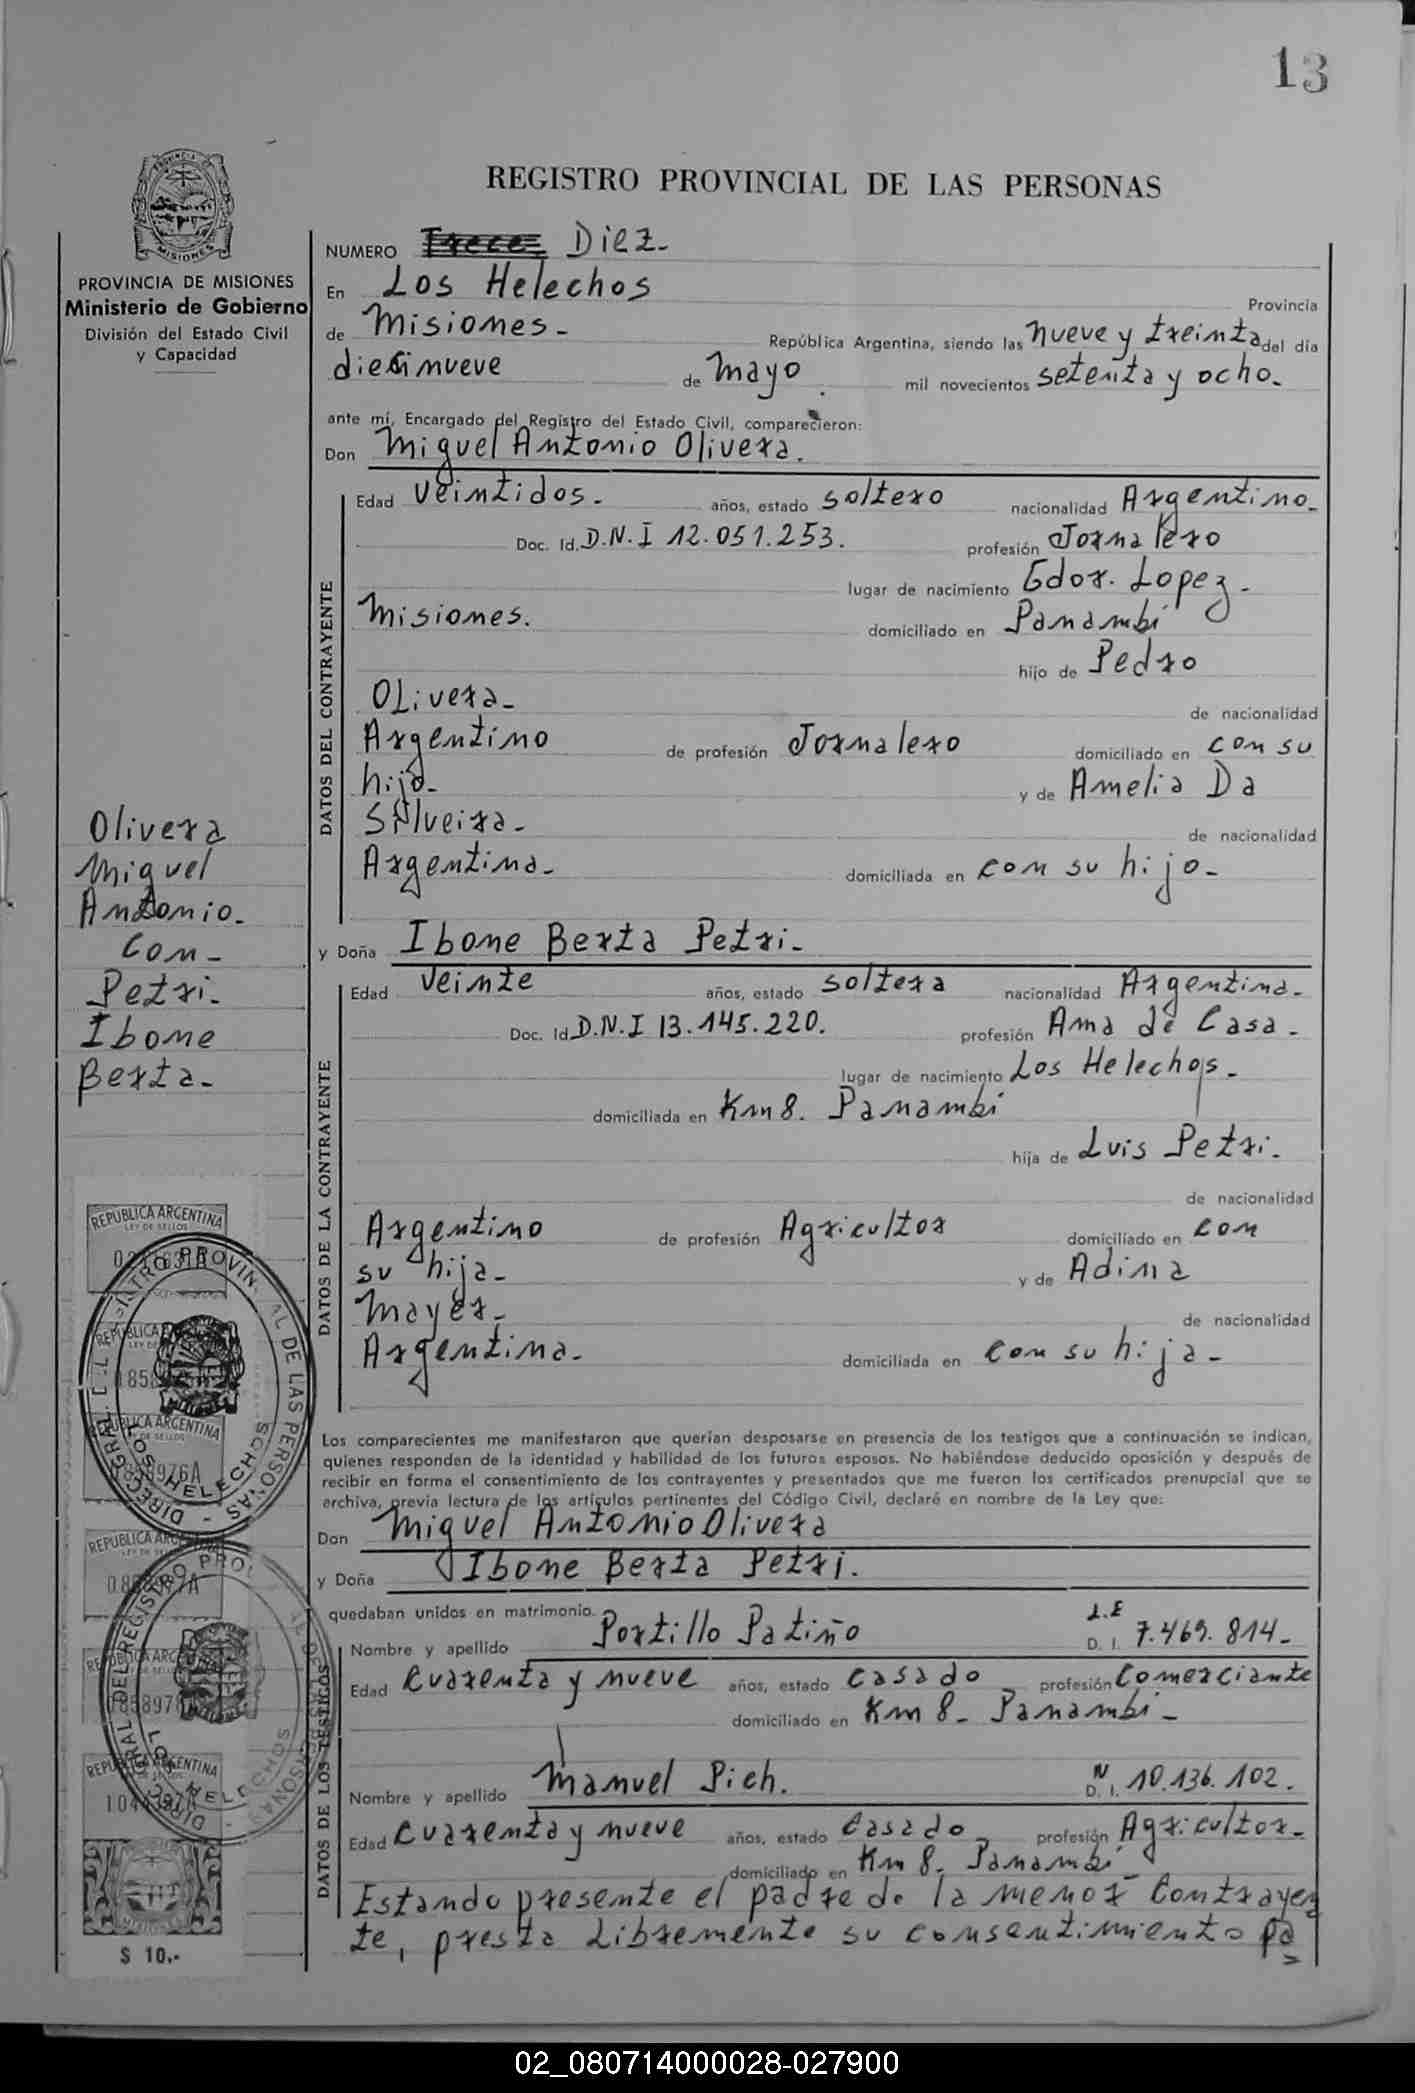 13
MISIONES
PROVINCIA DE MISIONES
Ministerio de Gobierno
División del Estado Civil
y Capacidad
REGISTRO PROVINCIAL DE LAS PERSONAS
NUMERO Trece Diez-
En Los Helechos Provincia
de Misiones- República Argentina, siendo las nueve y treinta del día
diecinueve de mayo. mil novecientos setenta y ocho.
ante mí, Encargado del Registro del Estado Civil, comparecieron:
Don Miguel Antonio Olivera.
DATOS DEL CONTRAYENTE
Edad Veintidos. años, estado soltero nacionalidad Argentino.
Doc. Id. D.N.I 12.051.253. profesión Jornalero
lugar de nacimiento Gdor. Lopez-
Misiones. domiciliado en Panambí
hijo de Pedro
Olivera- de nacionalidad
Argentino de profesión Jornalero domiciliado en con su
hijo- y de Amelia Da
Silveira- de nacionalidad
Argentina- domiciliada en con su hijo-
Olivera
Miguel
Antonio-
Con-
Petri-
Ibone
Berta-
y Doña Ibone Berta Petri-
DATOS DE LA CONTRAYENTE
Edad veinte años, estado soltera nacionalidad Argentina-
Doc. Id. D.N.I 13.145.220. profesión Ama de Casa-
lugar de nacimiento Los Helechos-
domiciliada en Km 8. Panambi
hija de Luis Petri.
de nacionalidad
Argentino de profesión Agricultor domiciliado en con
su hija- y de Adina
Mayer- de nacionalidad
Argentina- domiciliada en con su hija-
Los comparecientes me manifestaron que querían desposarse en presencia de los testigos que a continuación se indican,
quienes responden de la identidad y habilidad de los futuros esposos. No habiéndose deducido oposición y después de
recibir en forma el consentimiento de los contrayentes y presentados que me fueron los certificados prenupcial que se
archiva, previa lectura de los artículos pertinentes del Código Civil, declaré en nombre de la Ley que:
Don Miguel Antonio Olivera
y Doña Ibone Berta Petri.
quedaban unidos en matrimonio.
DATOS DE LOS TESTIGOS
Nombre y apellido Portillo Patiño L.E D. I. 7.469.814-
Edad Cuarenta y nueve años, estado Casado profesión Comerciante
domiciliado en Km 8- Panambi-
Nombre y apellido Manuel Pich. N D. I. 10.136.102.
Edad Cuarenta y nueve años, estado Casado- profesión Agricultor-
domiciliado en Km 8- Panambi
Estando presente el padre de la menor Contrayen
te, presta Libremente su consentimiento pa
REPUBLICA ARGENTINA
LEY DE SELLOS
REPUBLICA ARGENTINA
858976A
REPUBLICA ARGENTINA
DIREC. GRAL. DEL REGISTRO PROVINCIAL DE LAS PERSONAS
LOS HELECHOS
DIREC. GRAL. DEL REGISTRO PROVINCIAL DE LAS PERSONAS
LOS HELECHOS
REPUBLICA ARGENTINA
$ 10,-
02_080714000028-027900